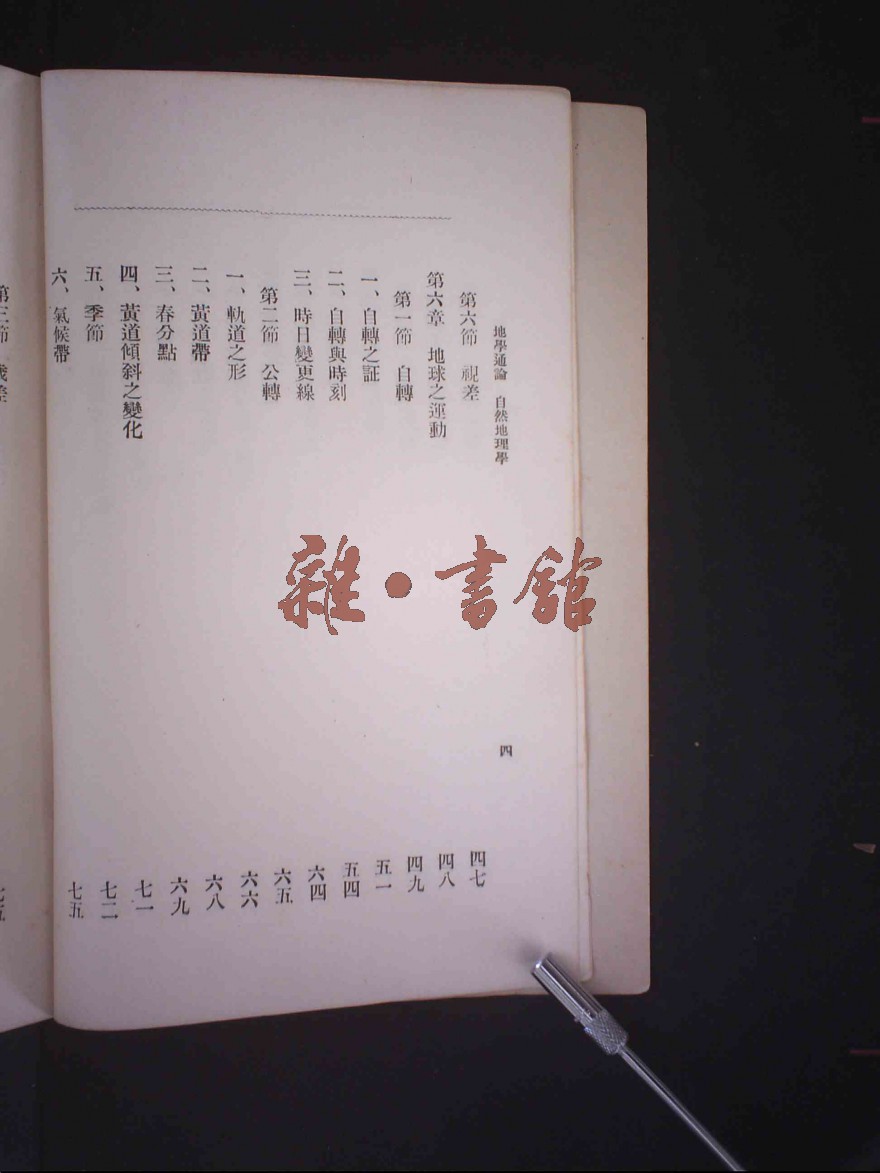 地學通論 自然地理學 四
第六節 視差 四七
第六章 地球之運動 四八
第一節 自轉 四九
一、自轉之証 五一
二、自轉與時刻 五四
三、時日變更線 六四
第二節 公轉 六五
一、軌道之形 六六
二、黃道帶 六八
三、春分點 六九
四、黃道傾斜之變化 七一
五、季節 七二
六、氣候帶 七五
第三節
雜·書館